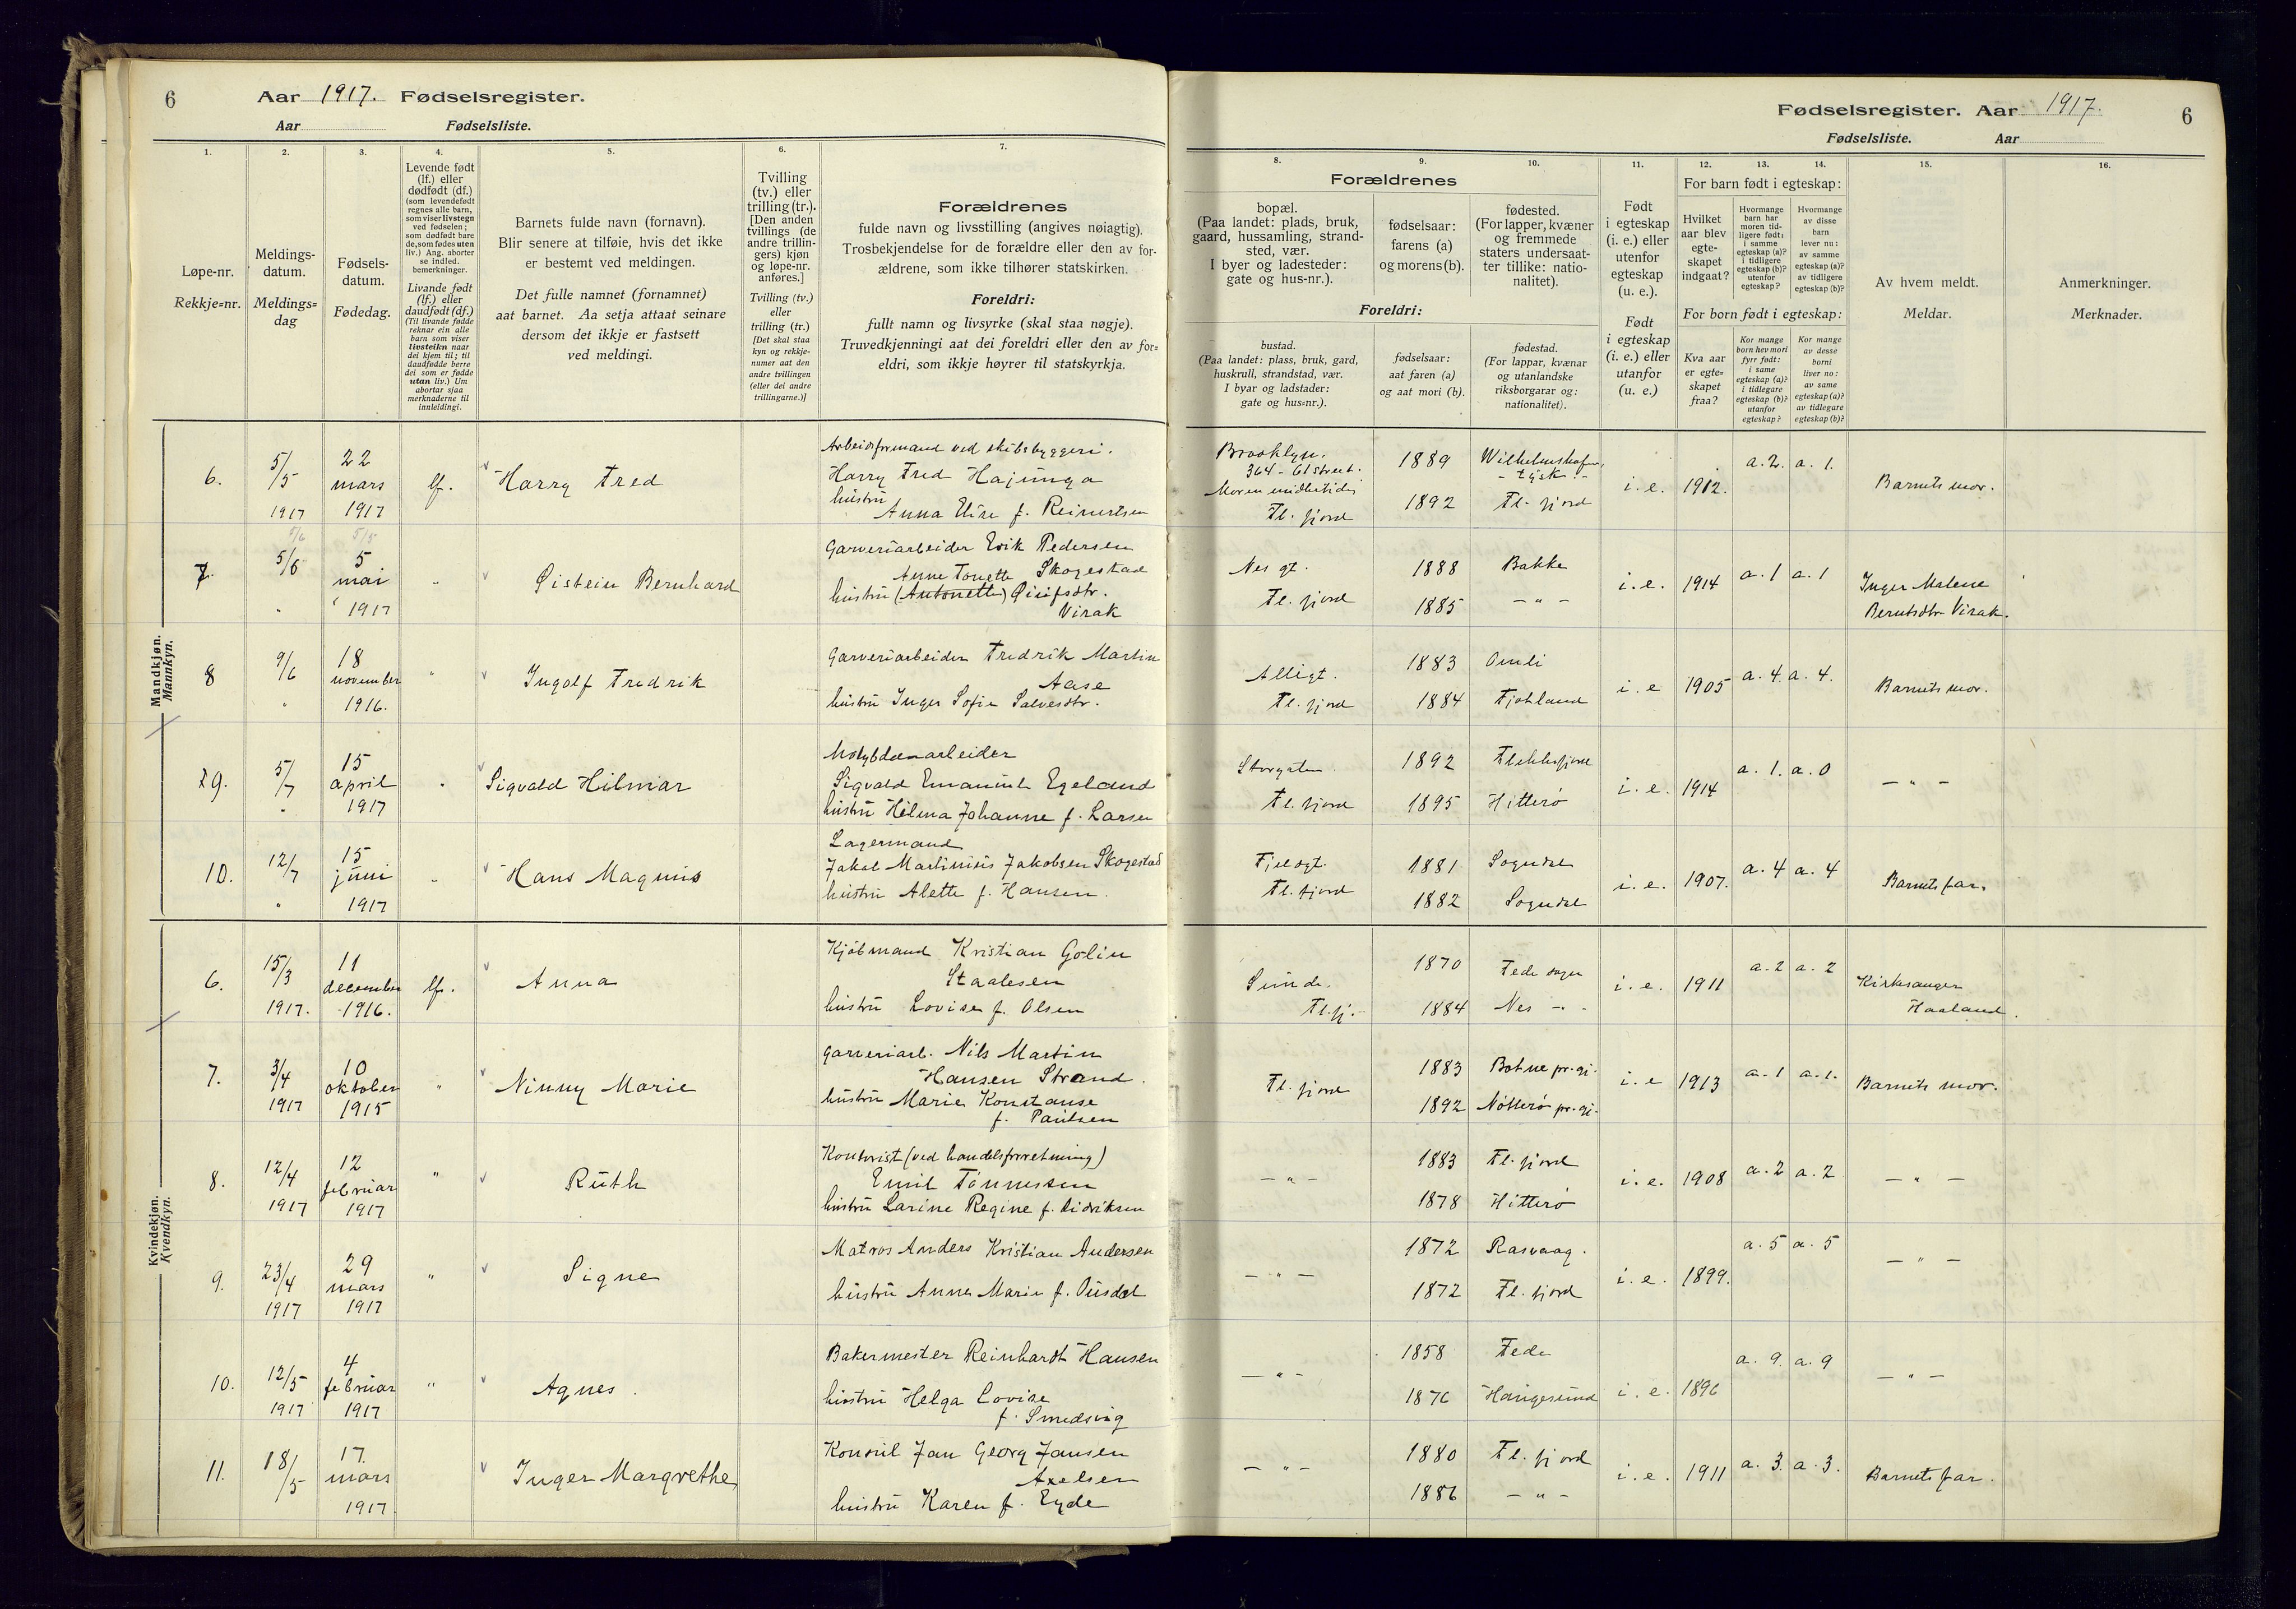 6
Aar 1917. Fødselsregister.
Aar Fødselsliste.
1.
2.
3.
4.
5.
6.
7.
Løpe-nr.
Rekkje=nr.
Meldings-
datum.
Meldings=
dag
Fødsels-
datum.
Fødedag.
Levende født
(lf.) eller
dødfødt (df.)
(som levendefødt
regnes alle barn,
som viser livstegn
ved fødselen;
som dødfødt bare
de, som fødes uten
liv.) Ang. aborter
se indled.
bemerkninger.
Livande født
(lf.) eller
daudfødt (df.)
(Til livande fødde
reknar ein alle
barn som viser
livsteikn naar
dei kjem til; til
daudfødde berre
dei som er fødde
utan liv.) Um
abortar sjaa
merknaderne til
innleidingi.
Barnets fulde navn (fornavn).
Blir senere at tilføie, hvis det ikke
er bestemt ved meldingen.
Det fulle namnet (fornamnet)
aat barnet. Aa setja attaat seinare
dersom det ikkje er fastsett
ved meldingi.
Tvilling
(tv.) eller
trilling (tr.).
[Den anden
tvillings (de
andre trillin-
gers) kjøn
og løpe-nr.
anføres.]
Tvilling (tv.)
eller
trilling (tr.)
[Det skal staa
kyn og rekkje-
numer aat den
andre tvillingen
(eller dei andre
trillingarne.)]
Forældrenes
fulde navn og livsstilling (angives nøiagtig).
Trosbekjendelse for de forældre eller den av for-
ældrene, som ikke tilhører statskirken.
Foreldri:
fullt namn og livsyrke (skal staa nøgje).
Truvedkjenningi aat dei foreldri eller den av for=
eldri, som ikkje høyrer til statskyrkja.
Mandkjøn.
Mannkyn.
6.
5/5
1917
22
mars
1917
lf.
Harry Fred
Arbeidsformand ved skibsbyggeri.
Harry Fred Hajunga
hustru
Anna Elise f. Reinertsen
7.
5/6
"
5
mai
1917
"
Øistein Bernhard
Garveriarbeider Erik Pedersen
Anne Tonette Skogestad
hustru (Antonette)
Virak
8
9/6
"
18
november
1916.
"
Ingolf Fredrik
Garveriarbeider Fredrik Martin
Aase
hustru Inger Sofie Salvesdtr.
9.
5/7
"
15
april
1917
"
Sigvald Hilmar
Molybdænarbeider
Sigvald Emanuel Egeland
hustru Helma Johanne f. Larsen
10.
12/7
"
15
juni
1917
"
Hans Magnus
Lagermand
Jakob Martinius Jakobsen Skogestad
hustru Alette f. Hansen.
Kvindekjøn.
Kvendkyn.
6.
15/3
1917.
11
december
1916.
lf.
Anna
Kjøbmand Kristian Golin
Staalesen
hustru Lovise f. Olsen
7.
3/4
1917
10
oktober
1915
"
Ninny Marie
Garveriarb. Nils Martin
Hansen Strand.
hustru Marie Konstanse
f. Paulsen
8.
12/4
1917
12
februar
1917
"
Ruth
Kontorist (ved handelsforretning)
Emil Tønnessen
hustru Larine Regine f. Didriksen
9.
23/4
1917
29
mars
1917
"
Signe
Matros Anders Kristian Andersen
hustru Anne Marie f. Ousdal
10.
12/5
1917
4
februar
1917
"
Agnes.
Bakermester Reinhardt Hansen
hustru Helga Lovise
f. Smedsvig
11.
18/5
17.
mars
1917.
Inger Margrethe
Konsul Jan Georg Jansen
Axelsen
hustru Karen f. Eyde
Fødselsregister. Aar 1917.
6
Fødselsliste. Aar
8.
9.
10.
11.
12.
13.
14.
15.
16.
Forældrenes
bopæl.
(Paa landet: plads, bruk,
gaard, hussamling, strand-
sted, vær.
I byer og ladesteder:
gate og hus-nr.).
fødselsaar:
farens (a)
og morens (b).
fødested.
(For lapper, kvæner
og fremmede
staters undersaat-
ter tillike: natio-
nalitet).
Foreldri:
bustad.
(Paa landet: plass, bruk, gard,
huskrull, strandstad, vær.
I byar og ladstader:
gate og hus=nr.).
fødselsaar:
aat faren (a)
og aat mori (b).
fødestad.
(For lappar, kvænar
og utanlandske
riksborgarar og:
nationalitet).
Født
i egteskap
(i. e.) eller
utenfor
egteskap
(u. e.).
Født
i egteskap
(i. e.) eller
utanfor
egteskap
(u. e.)
For barn født i egteskap:
Hvilket
aar blev
egte-
skapet
indgaat?
Hvormange
barn har
moren tid-
ligere født:
i samme
egteskap (a)?
i tidligere
egteskap (b)?
utenfor
egteskap?
Hvormange
av disse
barn
lever nu:
av samme
egteskap (a)?
av tidligere
egteskap (b)?
For born født i egteskap:
Kva aar
er egte=
skapet
fraa?
Kor mange
born hev mori
fyrr født:
i same
egteskap (a)?
i tidlegare
egteskap (b)?
utanfor
egteskap?
Kor mange
av desse
borni
liver no:
av same
egteskap (a)?
av tidlegare
egteskap (b)?
Av hvem meldt.
Meldar.
Anmerkninger.
Merknader.
Brooklyn.
364 - 61 street.
Moren midlertidig
Fl. fjord
1889
1892
Wilhelmshafen,
- tysk. -
Fl. fjord
i. e.
1912.
a. 2.
a. 1.
Barnets mor.
Nes gt.
Fl. fjord
1888
1885
Bakke
- " -
i. e.
1914
a. 1
a. 1
Inger Malene
Berntsdtr Virak.
Alligt.
Fl. fjord
1883
1884
Omli
Fjotland
i. e
1905
a. 4.
a. 4.
Barnets mor.
Storgaten.
Fl. fjord
1892
1895
Flekkefjord
Hitterø
i. e.
1914
a. 1.
a. 0
- " -
Fjeldgt.
Fl. fjord
1881
1882
Sogndal
Sogndal
i. e.
1907.
a. 4
a. 4
Barnets far.
Sunde.
Fl.fj.
1870
1884
Fede sogn
Nes - " -
i. e.
1911
a. 2
a. 2
Kirkesanger
Haaland.
Fl. fjord
1883
1892
Botne pr.gj.
Nøtterø pr.gj.
i. e
1913
a. 1
a. 1.
Barnets mor.
- " -
1883
1878
Fl. fjord
Hitterø
i. e.
1908
a. 2
a. 2
- " -
- " -
1872
1872
Rasvaag.
Fl. fjord
i. e.
1899.
a. 5
a. 5
- " -
- " -
1858
1876
Fede
Haugesund
i. e.
1896
a. 9.
a. 9
- " -
- " -
1880
1886
Fl. fjord
- " -
i. e.
1911
a. 3.
a. 3.
Barnets far.